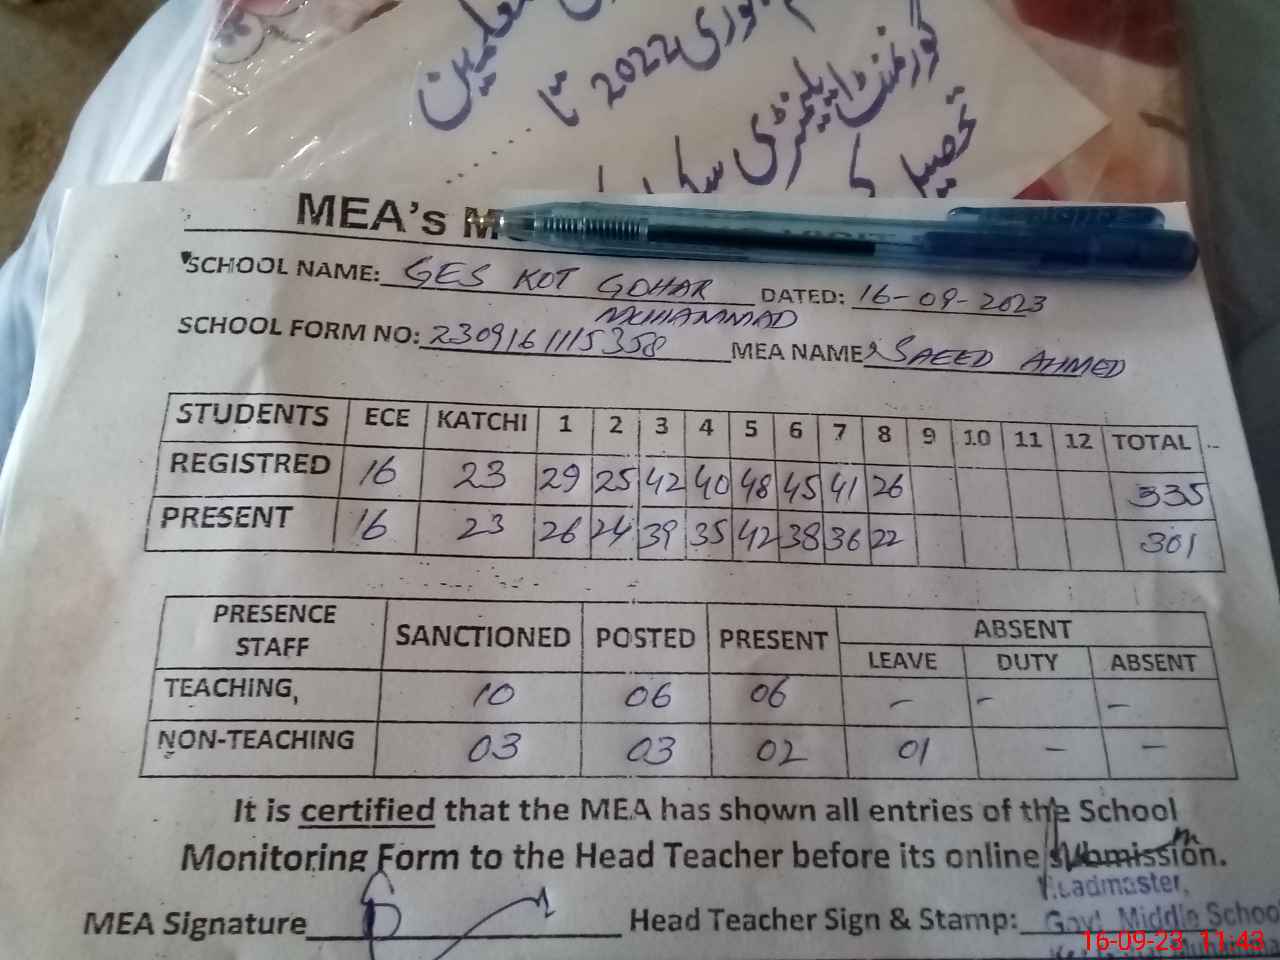 معلمین
2022 تا
گورنمنٹ ایلیمنٹری
تحصیل
MEA's
SCHOOL NAME: GES KOT GOHAR MUHAMMAD DATED: 16-09-2023
SCHOOL FORM NO: 2309161115358 MEA NAME SAEED AHMED
STUDENTS ECE KATCHI 1 2 3 4 5 6 7 8 9 10 11 12 TOTAL
REGISTRED 16 23 29 25 42 40 48 45 41 26 335
PRESENT 16 23 26 24 39 35 42 38 36 22 301
PRESENCE STAFF SANCTIONED POSTED PRESENT ABSENT
LEAVE DUTY ABSENT
TEACHING, 10 06 06 - - -
NON-TEACHING 03 03 02 01 - -
It is certified that the MEA has shown all entries of the School
Monitoring Form to the Head Teacher before its online submission.
Headmaster,
MEA Signature Head Teacher Sign & Stamp: Govt. Middle School
16-09-23 11:43